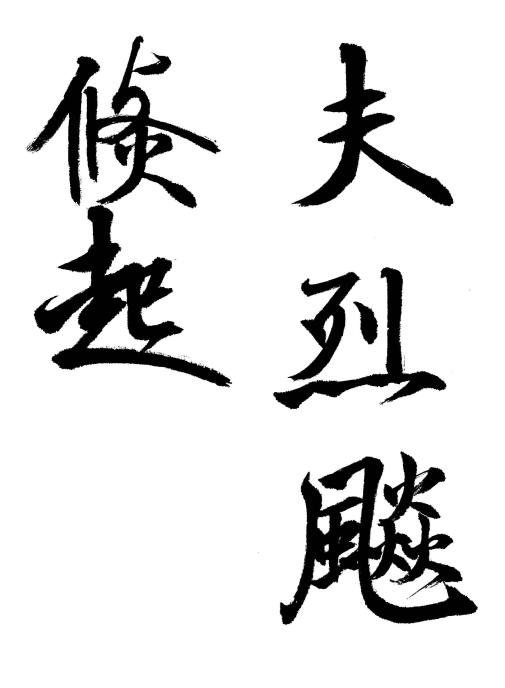 夫烈飈
倐起